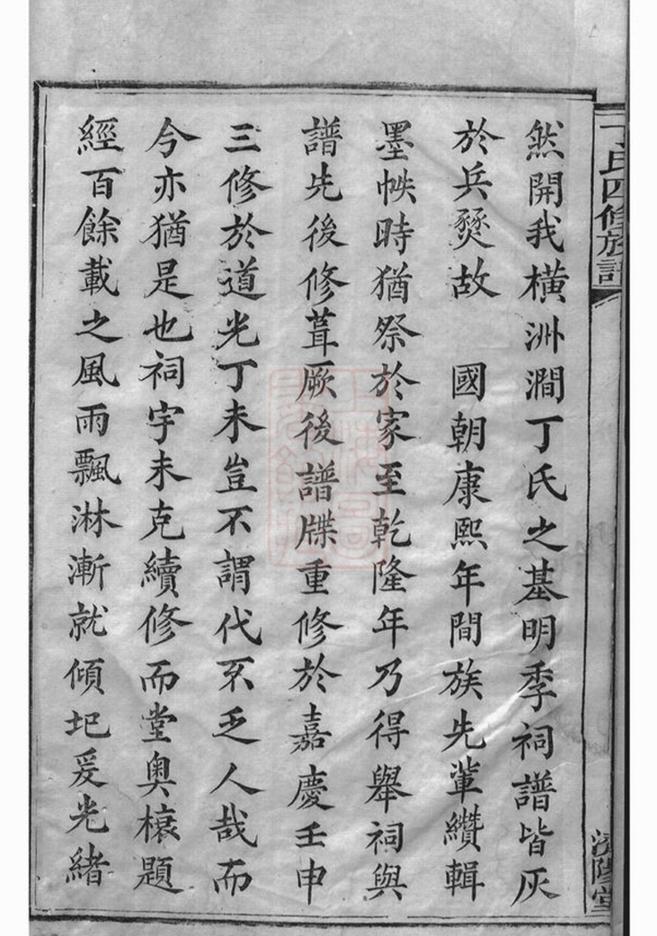 丁氏四修族譜
濟陽堂
然開我橫洲澗丁氏之基明季祠譜皆灰
於兵燹故　國朝康熙年間族先輩纘輯
墨帙時猶祭於家至乾隆年乃得舉祠與
譜先後修葺厥後譜牒重修於嘉慶壬申
三修於道光丁未豈不謂代不乏人哉而
今亦猶是也祠宇未克續修而堂奧榱題
經百餘載之風雨飄淋漸就傾圯爰光緒